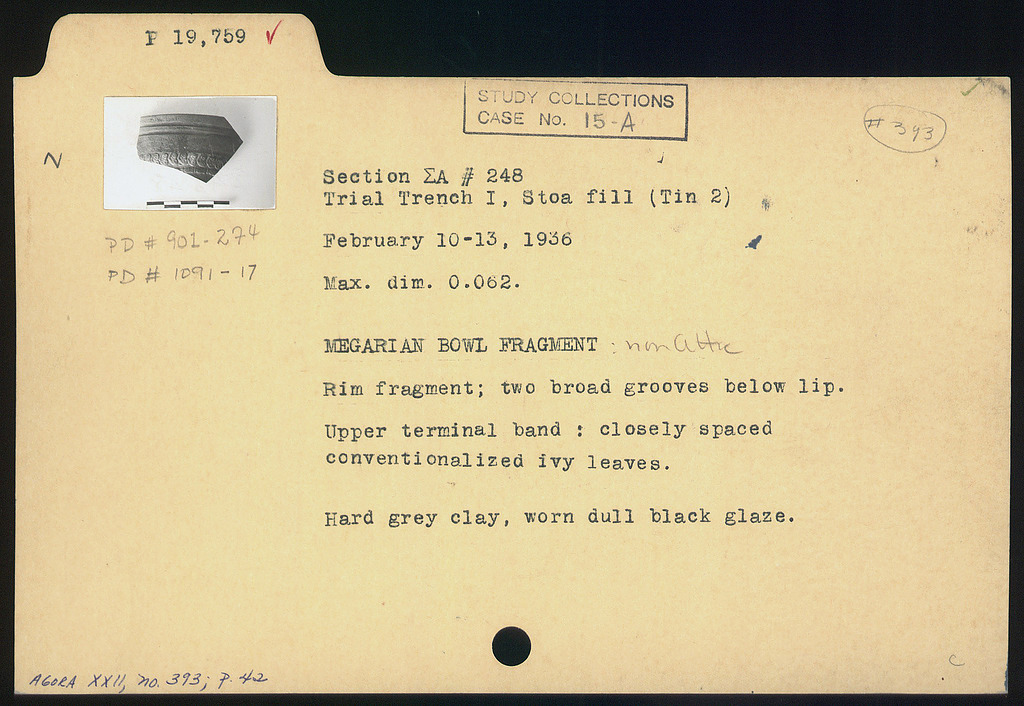 P 19,759 ✓
STUDY COLLECTIONS
CASE No. 15-A
# 393
N
Section ΣΑ # 248
Trial Trench I, Stoa fill (Tin 2)
PD # 901-274
February 10-13, 1936
PD # 1091-17
Max. dim. 0.062.
MEGARIAN BOWL FRAGMENT : non Attic
Rim fragment; two broad grooves below lip.
Upper terminal band : closely spaced
conventionalized ivy leaves.
Hard grey clay, worn dull black glaze.
C
AGORA XXII, no. 393; P. 42